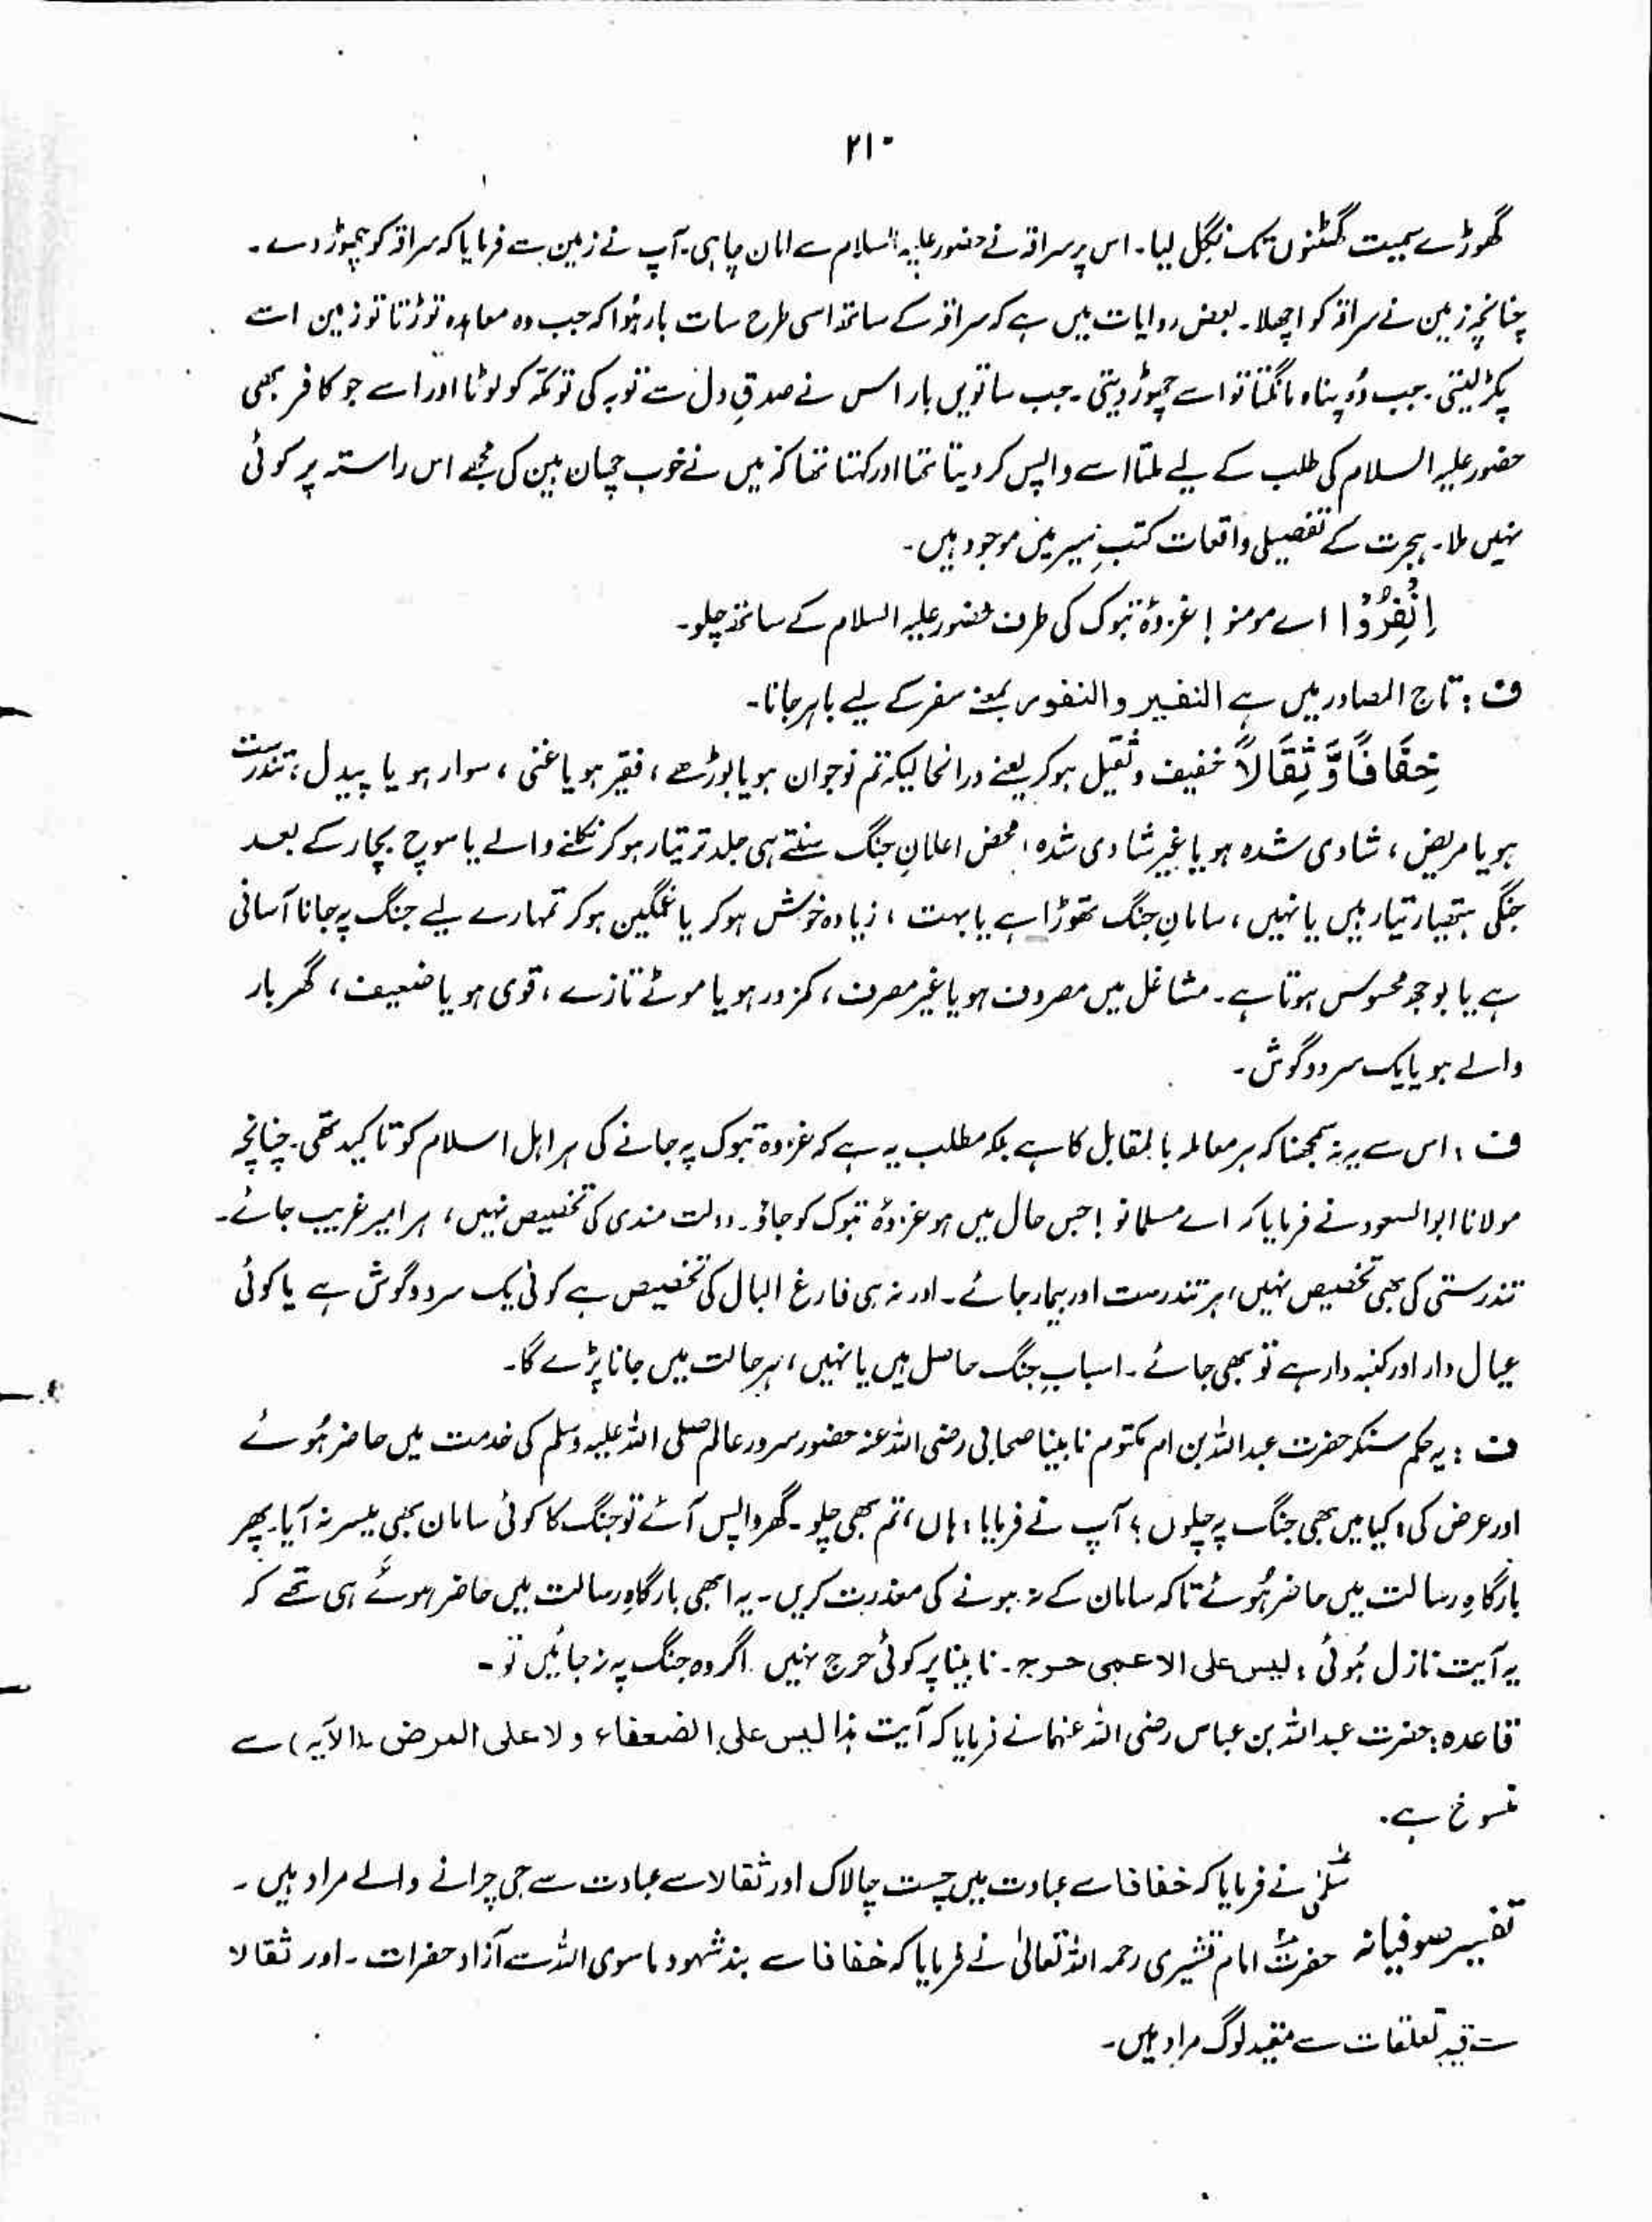 ۲۱۰
گھوڑے سمیت گھٹنوں تک نگل لیا۔ اس پر سراقہ نے حضور علیہ السلام سے امان چاہی۔ آپ نے زمین سے فرمایا کہ سراقہ کو چھوڑ دے۔
چنانچہ زمین نے سراقہ کو اچھلا۔ بعض روایات میں ہے کہ سراقہ کے ساتھ اسی طرح سات بار ہُوا کہ جب وہ معاہدہ توڑتا تو زمین اسے
پکڑ لیتی۔ جب وُہ پناہ مانگتا تو اسے چھوڑ دیتی۔ جب ساتویں بار اس نے صدقِ دل سے توبہ کی تو مکہ کو لوٹا اور اسے جو کافر بھی
حضور علیہ السلام کی طلب کے لیے ملتا اسے واپس کر دیتا تھا اور کہتا تھا کہ میں نے خوب چھان بین کی مجھے اس راستہ پر کوئی
نہیں ملا۔ ہجرت کے تفصیلی واقعات کتبِ سیر میں موجود ہیں۔
اِنْفِرُوْا اے مومنو! غزوۂ تبوک کی طرف حضور علیہ السلام کے ساتھ چلو۔
ف : تاج المصادر میں ہے النفیر والنفور بمعنے سفر کے لیے باہر جانا۔
خِفَافًا وَّ ثِقَالًا خفیف و ثقیل ہو کر یعنے درانحالیکہ تم نوجوان ہو یا بوڑھے ، فقیر ہو یا غنی ، سوار ہو یا پیدل ، تندرست
ہو یا مریض ، شادی شدہ ہو یا غیر شادی شدہ ، محض اعلانِ جنگ سنتے ہی جلد تر تیار ہو کر نکلنے والے یا سوچ بچار کے بعد
جنگی ہتھیار تیار ہیں یا نہیں ، سامانِ جنگ تھوڑا ہے یا بہت ، زیادہ خوش ہو کر یا غمگین ہو کر تمہارے لیے جنگ پہ جانا آسانی
ہے یا بوجھ محسوس ہوتا ہے۔ مشاغل میں مصروف ہو یا غیر مصرف ، کمزور ہو یا موٹے تازے ، قوی ہو یا ضعیف ، گھر بار
والے ہو یا یک سر دو گوش۔
ف : اس سے یہ نہ سمجھنا کہ ہر معاملہ بالمقابل کا ہے بلکہ مطلب یہ ہے کہ غزوہ تبوک پہ جانے کی ہر اہل اسلام کو تاکید تھی۔ چنانچہ
مولانا ابوالسعود نے فرمایا کہ اے مسلمانو! جس حال میں ہو غزوۂ تبوک کو جاؤ۔ دولت مندی کی تخصیص نہیں ، ہر امیر غریب جائے۔
تندرستی کی بھی تخصیص نہیں ، ہر تندرست اور بیمار جائے۔ اور نہ ہی فارغ البال کی تخصیص ہے کوئی یک سر دو گوش ہے یا کوئی
عیال دار اور کنبہ دار ہے تو بھی جائے۔ اسبابِ جنگ حاصل ہیں یا نہیں ، ہر حالت میں جانا پڑے گا۔
ف : یہ حکم سنکر حضرت عبداللہ بن ام مکتوم نابینا صحابی رضی اللہ عنہ حضور سرور عالم صلی اللہ علیہ وسلم کی خدمت میں حاضر ہُوئے
اور عرض کی : کیا میں بھی جنگ پہ چلوں ؟ آپ نے فرمایا : ہاں ، تم بھی چلو۔ گھر واپس آئے تو جنگ کا کوئی سامان بھی میسر نہ آیا۔ پھر
بارگاہِ رسالت میں حاضر ہُوئے تاکہ سامان کے نہ ہونے کی معذرت کریں۔ یہ ابھی بارگاہِ رسالت میں حاضر ہوئے ہی تھے کہ
یہ آیت نازل ہُوئی : لیس علی الاعمی حرج۔ نابینا پر کوئی حرج نہیں اگر وہ جنگ پہ نہ جائیں تو۔
قاعدہ : حضرت عبداللہ بن عباس رضی اللہ عنہما نے فرمایا کہ آیت ہذا لیس علی الضعفاء ولا علی المرضٰی (الآیہ) سے
منسوخ ہے۔
تفسیر صوفیانہ
نے فرمایا کہ خفافا سے عبادت میں چست چالاک اور ثقالا سے عبادت سے جی چرانے والے مراد ہیں۔
حضرت امام قشیری رحمہ اللہ تعالیٰ نے فرمایا کہ خفافا سے بند شہود ماسوی اللہ سے آزاد حضرات۔ اور ثقالا
سے قیدِ تعلقات سے مقید لوگ مراد ہیں۔